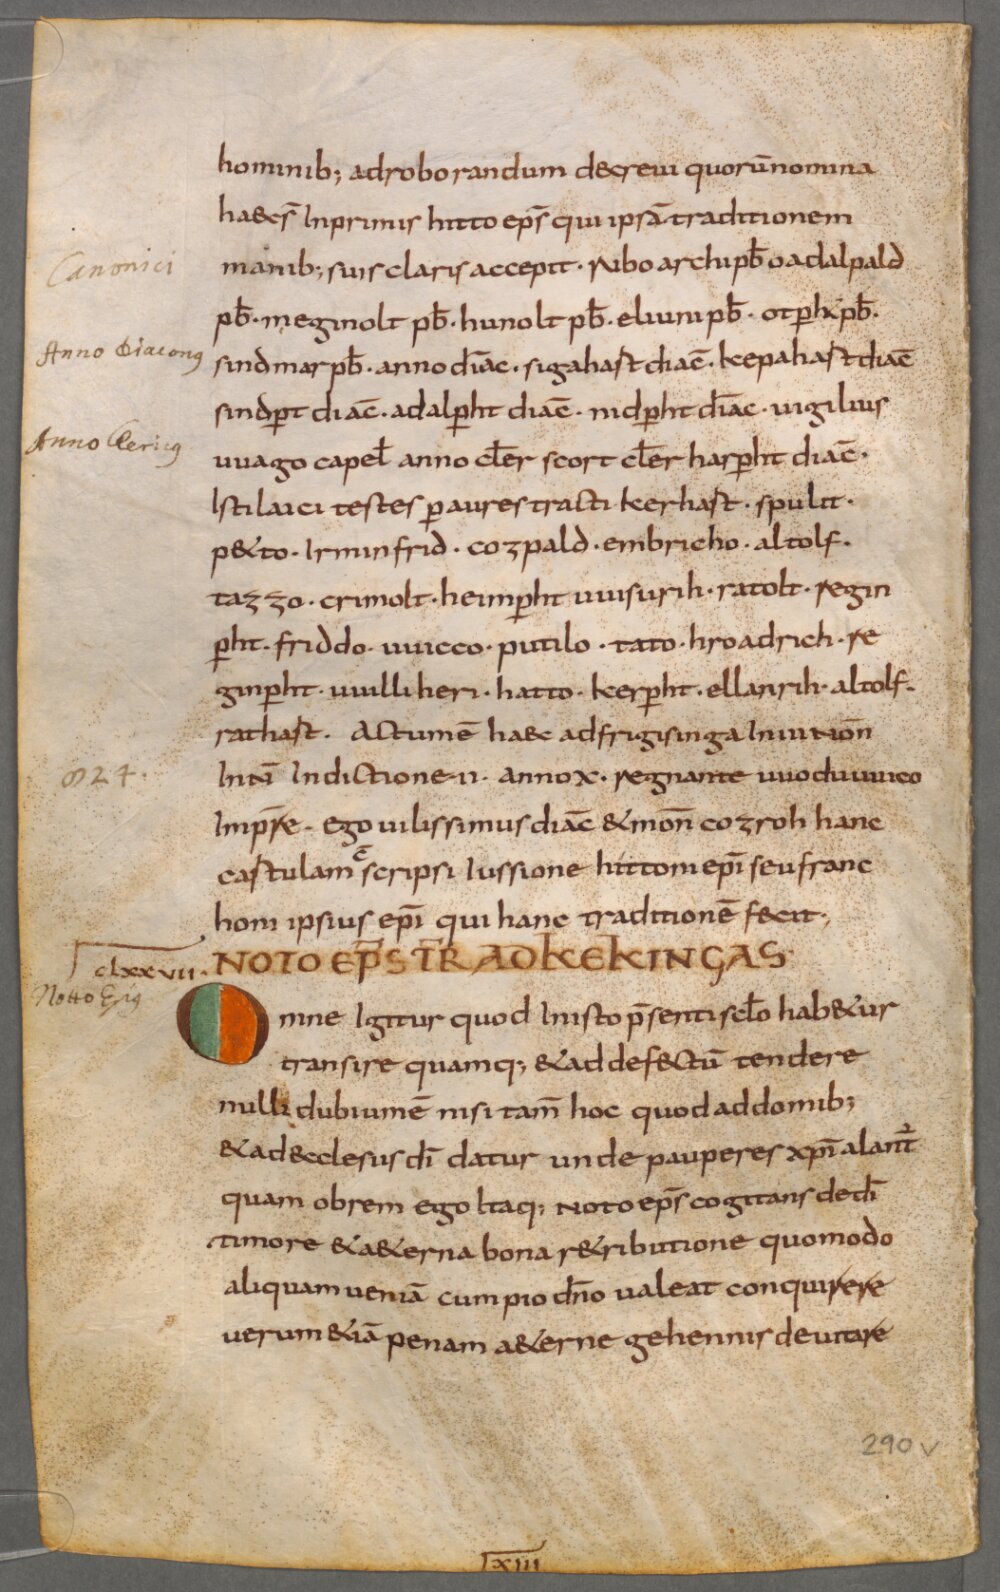 hominib; adroborandum d&creui quorūnomina
ha&c s̄ Inprimis hitto ep̄s qui ipsā traditionem
manib; suis claris accepit · Ribo archip̄b oadalpald
p̄b · meginolt p̄b · hunolt p̄b · eliuni p̄b · otp̄ht p̄b ·
sindmar p̄b · anno diāc · sigahast diac̄ · kepahast diac̄
sindp̄t diac̄ · adalp̄ht diac̄ · nidp̄ht diāc · uigilius
uuago capel̄ anno cl̄er scort cl̄er harp̄ht diac̄ ·
Isti laici testes p̄ aures tracti kerhast · spulit ·
p&to · Irminfrid · cozpald · embricho · altolf ·
tazzo · crimolt · heimp̄ht uuisurih · ratolt · regin
p̄ht · friddo · uuicco · putilo · tato · hroadrich · re
ginp̄ht · uuilliheri · hatto · kerp̄ht · ellanrih · altolf ·
rathast · Actumē haec adfrigisinga
Indictione · II · anno x · regnante uuoduuuico
Imp̄re · ego uilissimus diāc & mon̄ cozroh hanc
castulam scripsi Iussione hittoni ep̄i seu franc
honi ipsius ep̄i qui hanc traditionē fecit ·
NOTO EP̄S TR̄ ADKEKINGAS
Omne Igitur quod Inisto p̄senti scl̄o hab&ur
transire quamq; & ad defectū tendere
nulli dubiumē nisi tam̄ hoc quod addomib;
& ad &cclesus dī datur unde pauperes xp̄i alant̄
quam obrem ego Itaq; NOTO ep̄s cogitans dedī
timore & a&erna bona r&ributione quomodo
aliquam ueniā cum pio dn̄o ualeat conquirere
uerum &iā penam a&erne gehennis deuitare
Canonici
Anno Diaconus
Anno Clericus
824.
clxxvii ·
Notto Epis
290 v
LXIII